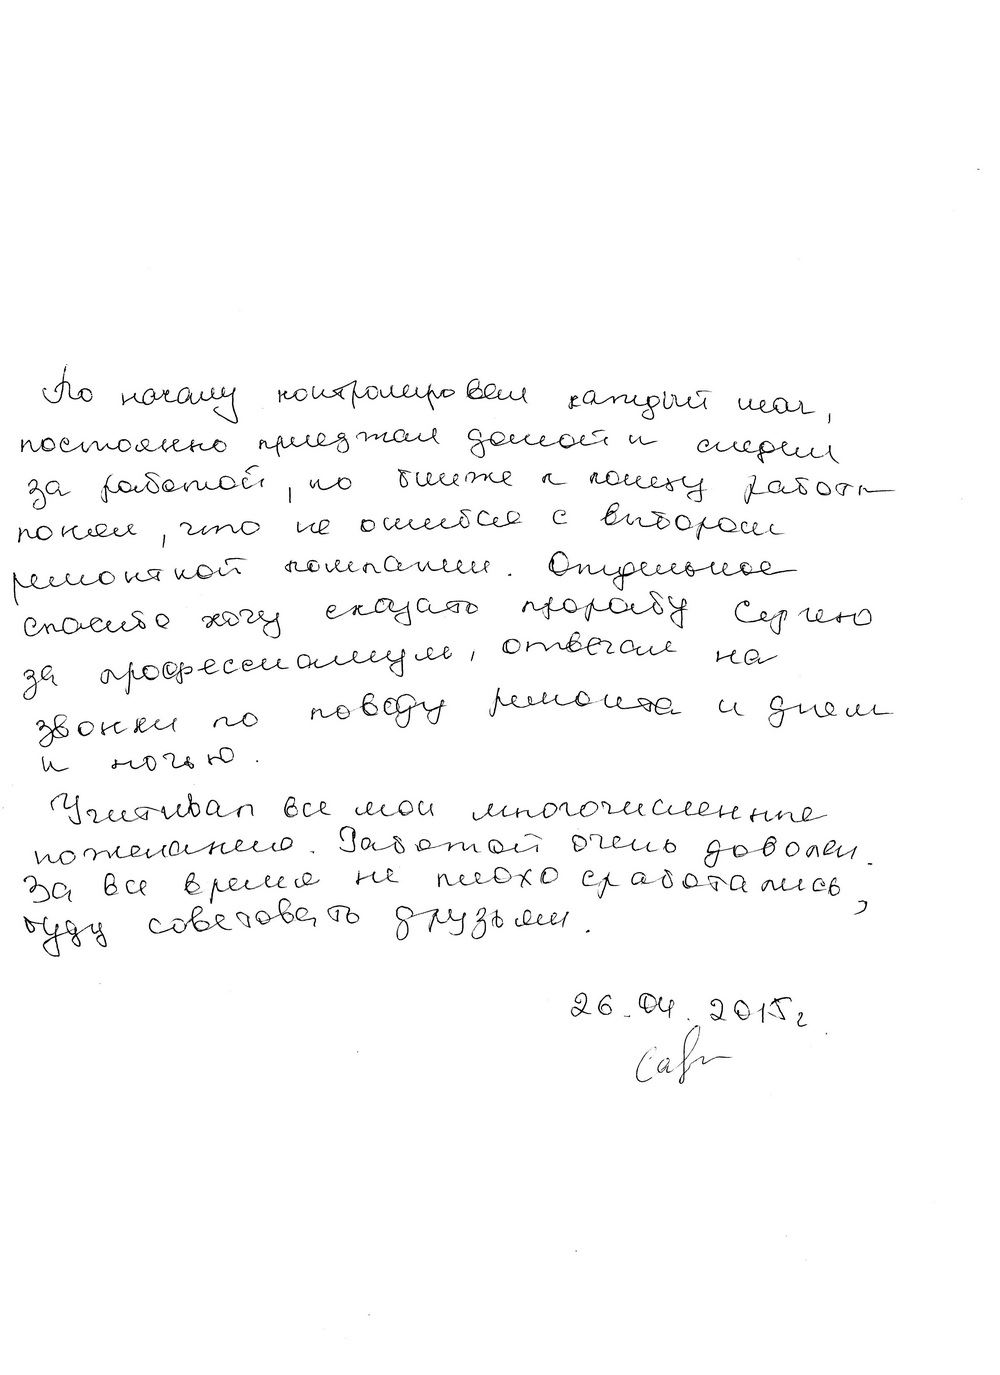 По началу контролировал каждый шаг,
постоянно приезжал домой и следил
за работой, но ближе к концу работы
понял, что не ошибся с выбором
ремонтной компании. Отдельное
спасибо хочу сказать прорабу Сергею
за профессионализм, отвечал на
звонки по поводу ремонта и днем
и ночью.
Учитывал все мои многочисленные
пожелания. Работой очень доволен.
За все время не плохо сработались,
буду советовать друзьям.
26.04.2015г